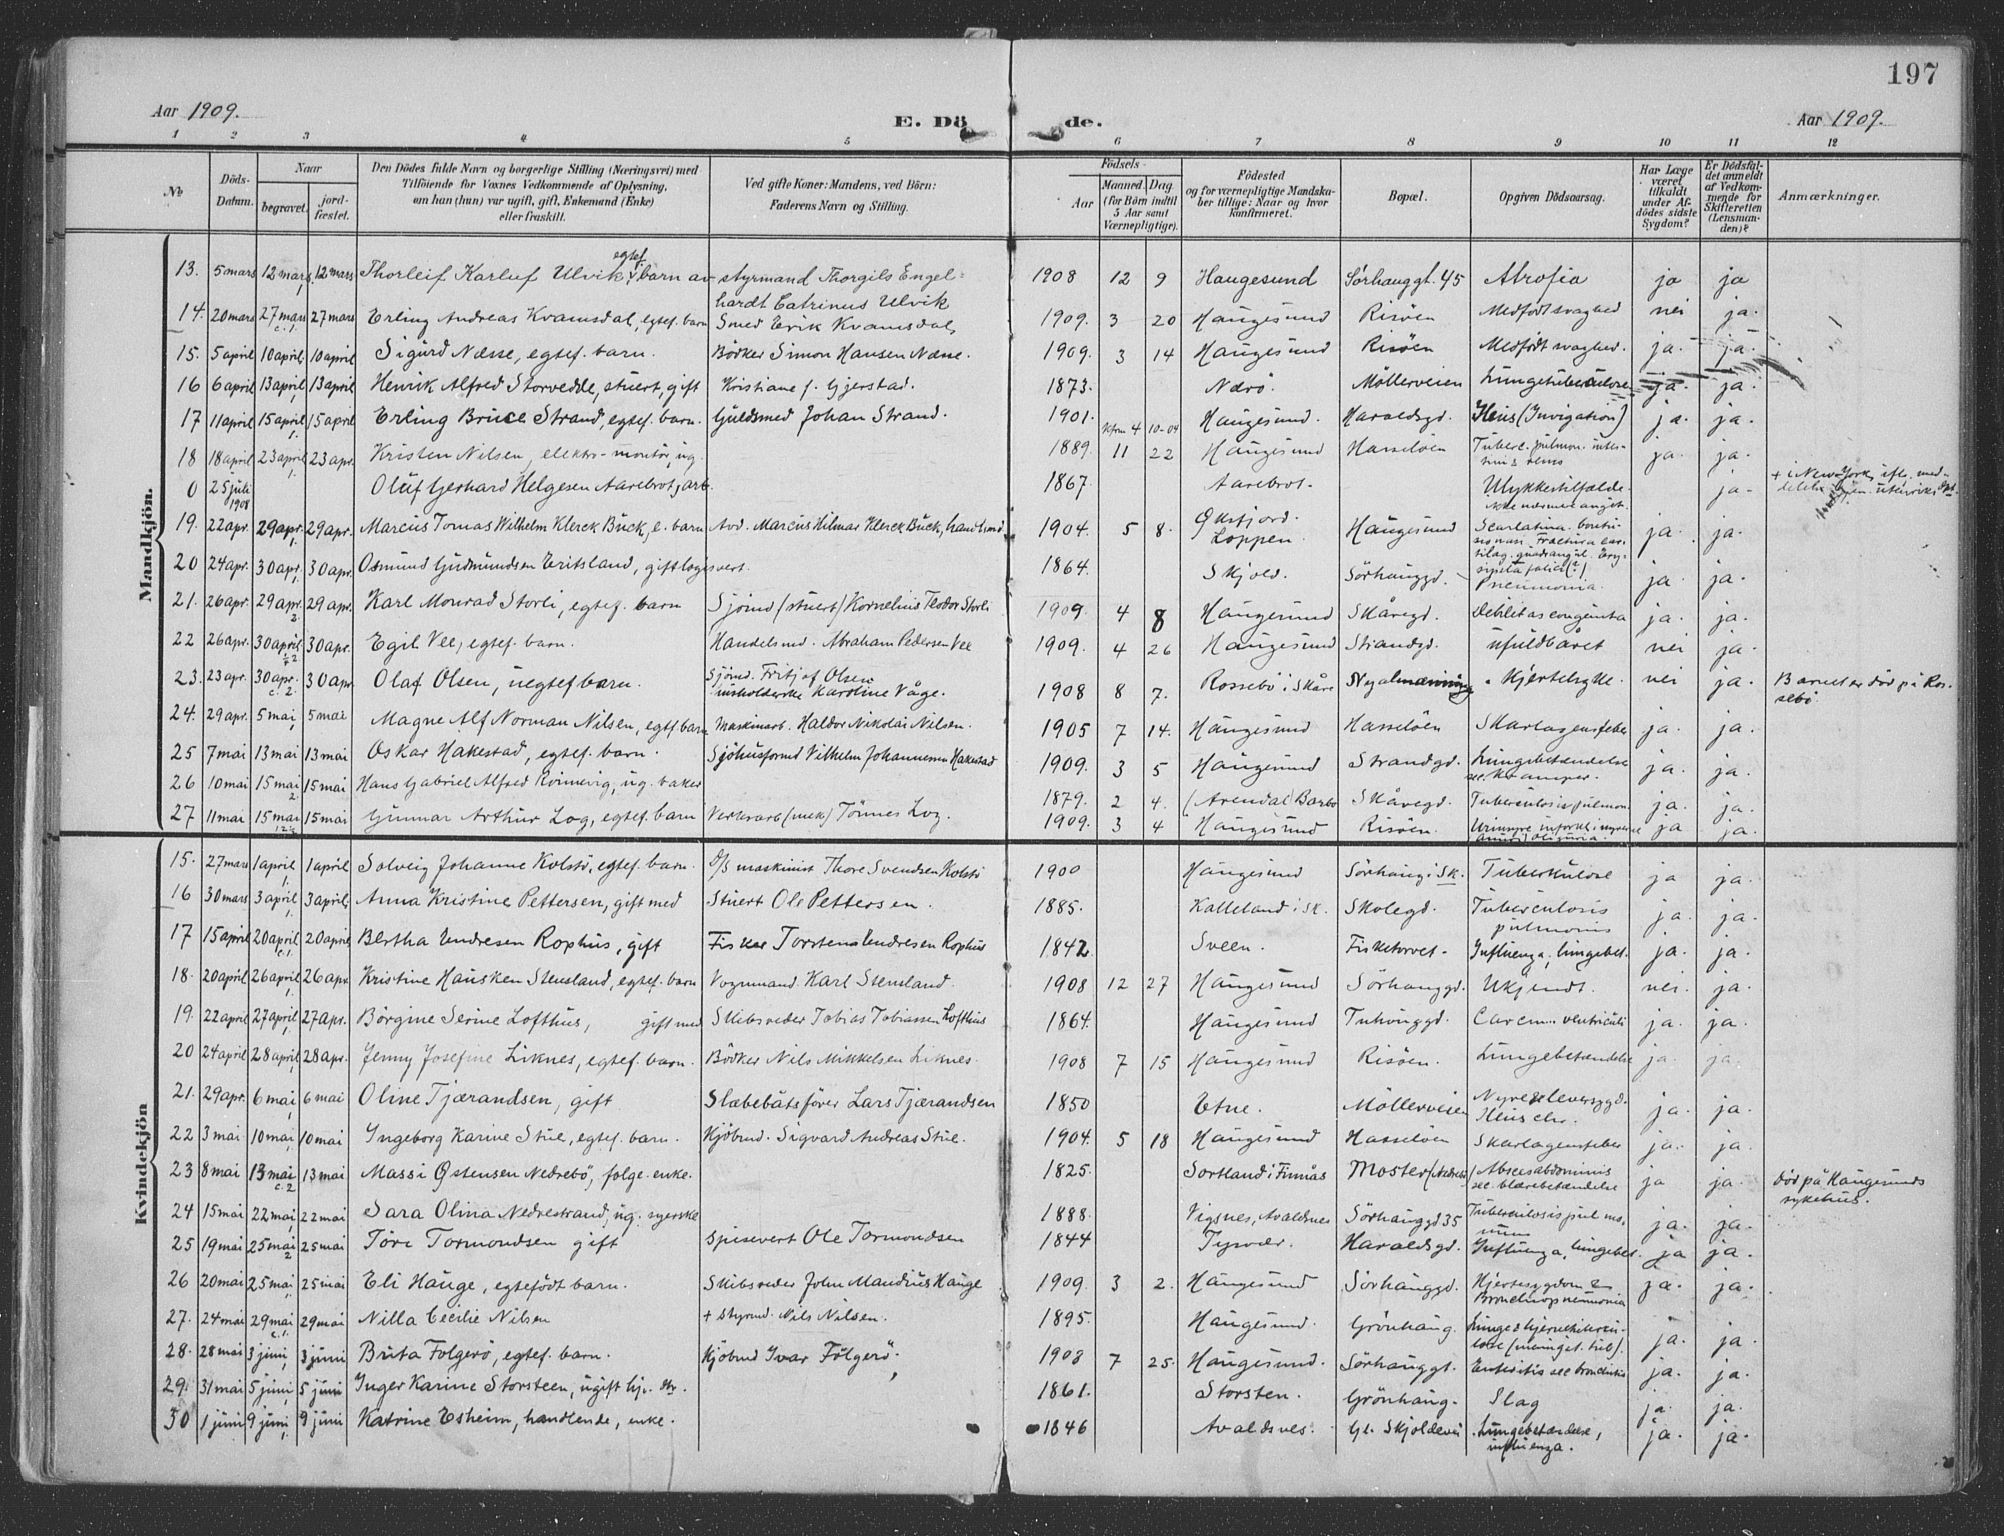 197
Aar 1909. E. Dö de. Aar 1909.
1 2 3 4 5 6 7 8 9 10 11 12
No Döds-Datum. Naar begravet. jord-fæstet. Den Dödes fulde Navn og borgerlige Stilling (Næringsvei) med Tilföiende for Voxnes Vedkommende af Oplysning, om han (hun) var ugift, gift, Enkemand (Enke) eller fraskilt. Ved gifte Koner: Mandens, ved Börn: Faderens Navn og Stilling. Födsels- Aar Maaned. Dag. (for Börn indtil 5 Aar samt Værnepligtige). Födested og for værnepligtige Mandska-ber tillige: Naar og hvor konfirmeret. Bopæl. Opgiven Dödsaarsag. Har Læge været tilkaldt under Af-dödes sidste Sygdom? Er Dödsfal-det anmeldt af Vedkom-mende for Skifteretten (Lensman-den)? Anmærkninger.
Mandkjön.
13. 5 mars 12 mars 12 mars Thorleif Karluf Ulvik, egtef. barn av styrmand Thorgils Engel-hardt Catrinus Ulvik 1908 12 9 Haugesund Sørhauggt. 45 Atrofia ja ja
14. 20 mars 27 mars 27 mars Erling Andreas Kvamsdal, egtef. barn Smed Erik Kvamsdal, 1909. 3 20 Haugesund Risöen Medfödt svaghed nei ja.
15. 5 april 10 april 10 april Sigurd Næsse, egtef. barn. Bödker Simon Hansen Næsse. 1909. 3 14 Haugesund Risöen Medfödt svaghed. ja. ja.
16 6 april 13 april 13 april Henrik Alfred Storvedde, stuert, gift Kristiane f. Gjerstad. 1873. Nærö. Möllerveien Lungetuberculose ja. ja.
17 11 april 15 april 15 april Erling Bruce Strand, egtef. barn. Guldsmed Johan Strand. 1901. Haugesund. Haraldsgd. Ileus (Invigation) ja. ja.
18 18 april 23 april 23 apr. Kristen Nilsen, elektro-montör, ug. 1889. 11 22 Kfrm 4 10-04 Haugesund Hasselöen Tuberc. pulmon. ja. ja.
0 25 juli 1908 Oluf Gerhard Helgesen Aarebrot, arb. 1867. Aarebrot. Ulykkestilfælde. ikke nærmere angit. ja. + i New-York, ifl. med-
19. 22 apr. 29 apr. 29 apr. Marcus Tomas Wilhelm Klerck Buck, e. barn Avd. Marcus Hilmar Klerck Buck, handlsmd. 1904. 5 8. Öksfjord. Loppen. Haugesund Scarlatina. ja. ja.
20 24 apr. 30 apr. 30 apr. Osmund Gudmundsen Eritsland, gift logisvert. 1864. Skjold. Sörhauggd. Pneumonia. ja. ja.
21. 26 apr. 29 apr. 29 apr. Karl Monrad Storli, egtef. barn Sjömd (stuert) Kornelius Teodor Storli 1909. 4 8 Haugesund Skåregd. Debilitas congenita ja. ja.
22 26 apr. 30 april 30 apr. Egil Vee, egtef. barn. Handelsmd. Abraham Pedersen Vee 1909. 4 26 Haugesund Strandgd. ufuldbåret nei ja.
23. 23 apr. 30 apr. 30 apr. Olaf Olsen, uegtef barn. Sjömd. Fritjof Olsen Karoline Våge. 1908 8 7. Rossebö i Skåre Kjertelsyke. nei ja. Barnet er död på Ros-sebö.
24. 29 apr. 5 mai 5 mai Magne Alf Norman Nilsen, egtf barn Maskinarb. Haldor Nikolai Nilsen. 1905 7 14. Haugesund Hasselöen Skarlagensfeber ja. ja.
25 7 mai 13 mai 13 mai Oskar Hakestad, egtef. barn. Sjöhusformd Vilhelm Johannesen Hakestad 1909. 3 5 Haugesund Strandgd. Lungebetændelse sec. Kramper. ja. ja.
26 10 mai 15 mai 15 mai Hans Gabriel Alfred Kvinevig, ug. baker 1879. 2 4. (Arendal) Barbo Skåregd. Tuberculosis pulmon. ja. ja.
27 11 mai 15 mai 15 mai Gunnar Arthur Log, egtef. barn Verkarb (mek) Tönnes Log. 1909. 3 4 Haugesund Risöen. ja ja.
Kvindekjön
15. 27 mars 1 april 1 april Solveig Johanne Kolstö, egtef. barn. D/S maskinist Thore Svendsen Kolstö 1900 Haugesund Sörhaug i Sk. Tuberkulose ja ja.
16 30 mars 3 april 3 april Anna Kristine Pettersen, gift med Stuert Ole Pettersen. 1885. Kalleland i Sk. Skolegd. Tuberculosis pulmonis ja. ja.
17 15 april 20 april 20 april Bertha Endresen Rophus, gift Fisker Torstens Endresen Rophus 1842 Sveen. Fisketorvet. Influenza, lungebet. ja. ja.
18. 20 april 26 april 26 apr. Kristine Hausken Stensland, egtef. barn Vognmand. Karl Stensland. 1908 12 27 Haugesund Sörhauggd. Ukjendt. nei. ja.
19. 22 april 27 april 27 apr. Börgine Serine Lofthus, gift med Skibsreder Tobias Tobiassen Lofthus 1864. Haugesund Tuhauggd. Carcin. ventriculi ja. ja.
20 24 april 28 april 28 apr. Jenny Josefine Liknes, egtef. barn. Bödker Nils Mikkelsen Liknes. 1908 7 15 Haugesund Risöen. Lungebetændelse ja. ja.
21. 29 apr. 6 mai 6 mai Oline Tjærandsen, gift Slæbebåtsförer Lars Tjærandsen 1850 Etne. Möllerveien Nyre & leversygd. Ileus chr. ja. ja.
22 3 mai 10 mai 10 mai Ingeborg Karine Stue, egtef. barn. Kjöbmd. Sigvard Andreas Stue. 1904. 5 18 Haugesund Hasselöen Skarlagensfeber ja. ja.
23 8 mai 13 mai 13 mai Massi Östensen Nedrebö, folge. enke. 1825. Sortland i Finnås Moster (Nedrebö) Absces abdominis sec. blærebetændelse ja ja. död på Haugesunds sykehus.
24 15 mai 22 mai 22 mai Sara Olina Nedrestrand, ug. syerske 1888. Vigsnes, Avaldsnes Sörhauggd 35 Tuberkulosis pulmo-num ja. ja.
25 19 mai 25 mai 25 mai Töri Tormondsen gift Spisevert Ole Tormondsen 1844 Tysvær. Haraldsgd. Influenza, lungebet. ja ja.
26 20 mai 25 mai 25 mai Eli Hauge, egtefödt barn. Skibsreder John Mandius Hauge 1909. 3 2. Haugesund Sörhauggd. Hjertesygdom & Bronchopneumonia ja. ja.
27. 24 mai 29 mai 29 mai Nilla Cecilie Nilsen + Styrmd. Nils Nilsen. 1895. Haugesund. Grönhaug. Lunge & hjernehindetuberku-lose ja. ja.
28. 28 mai 3 juni 3 juni Brita Folgerö, egtef. barn. Kjöbmd Ivar Folgerö, 1908 7 25. Haugesund. Sörhauggt. Enteritis sec bronchitis ja. ja.
29. 31 mai 5 juni 5 juni Inger Karine Storsteen, ugift 1861. Storsten. Grönhaug. Slag ja. ja.
30 1 juni 9 juni 9 juni Katrine Esheim, handlende, enke. 1846 Avaldsnes. Gl. Skjoldevei Lungebetændelse, influenza. ja. ja.